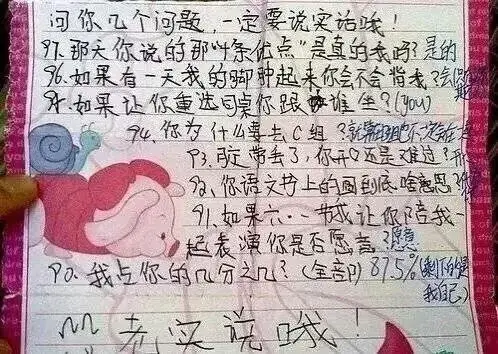 问你几个问题,一定要说实话哦!
97.那天你说的那"4条优点"是真的我吗?是的
96.如果有一天我的脚肿起来你会不会背我?会
95.如果让你重选同桌你跟谁坐?(you)
94.你为什么要去C组?
93.我定带丢了,你开心还是难过?
92.你语文书上的画到底啥意思?
91.如果六·一节我让你陪我一
起表演你是否愿意?愿意
90.我占你的几分之几?(全部)87.5%(剩下的是
我自己)
老实说哦!